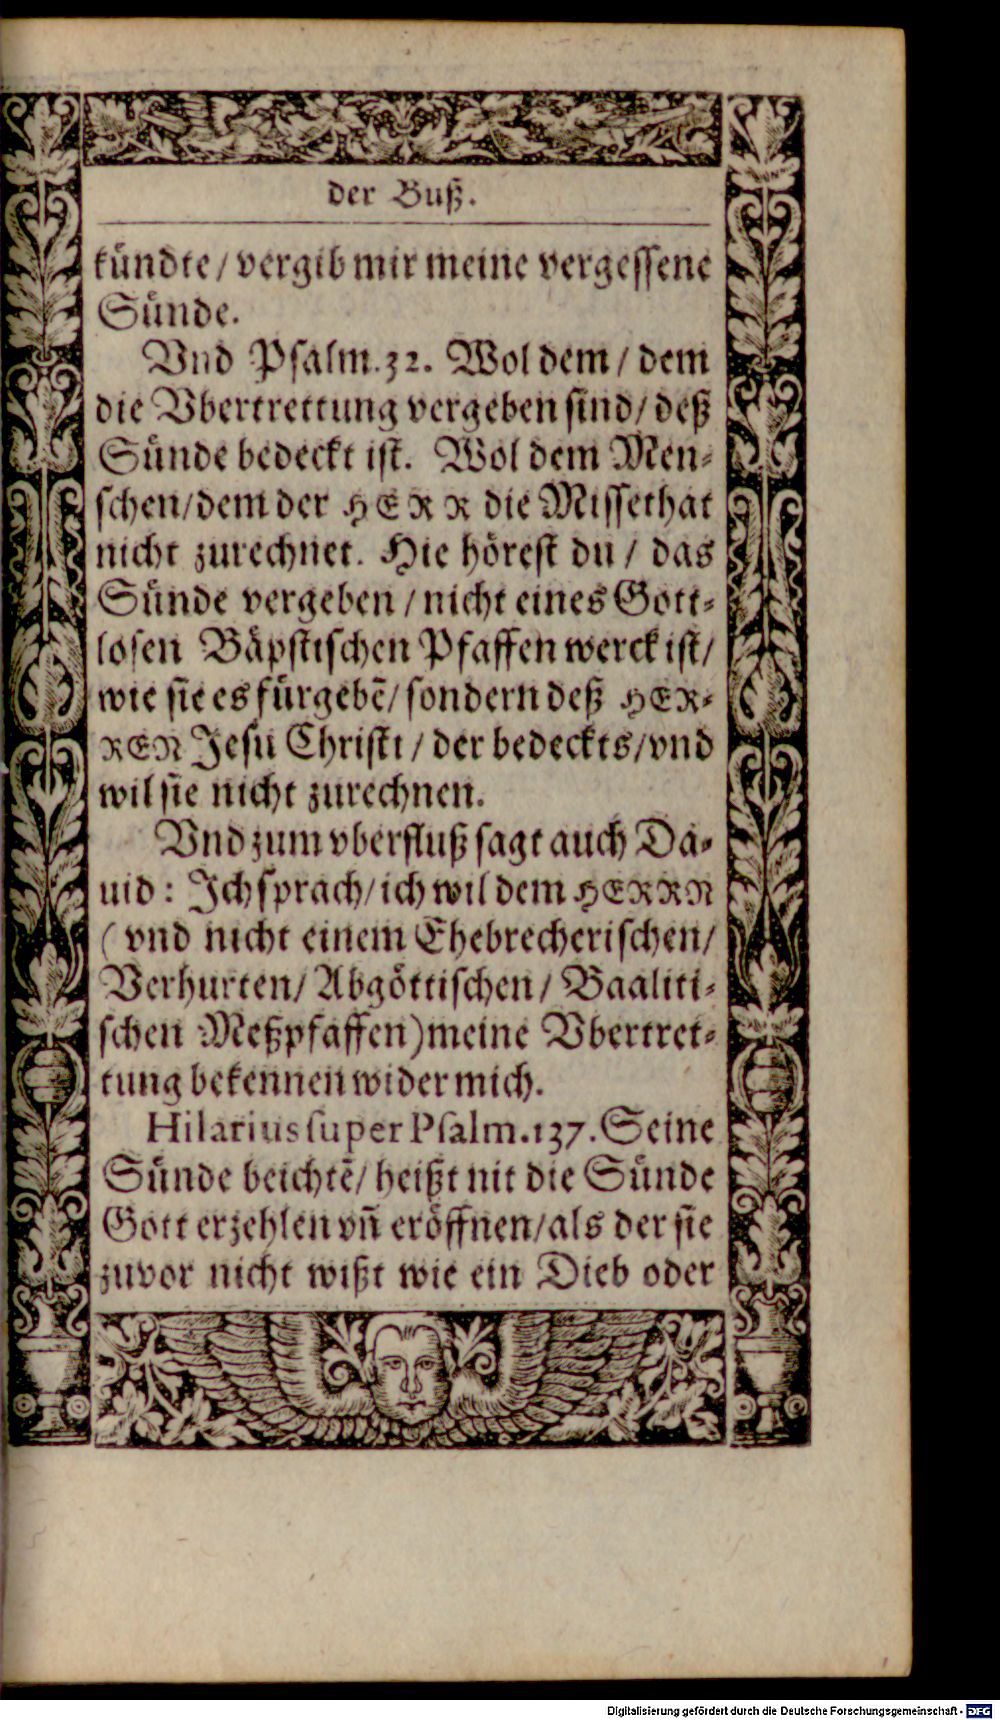 der Buß.
kündte/ vergib mir meine vergessene
Sünde.
Vnd Psalm. 32. Wol dem/ dem
die Vbertrettung vergeben sind/ deß
Sünde bedeckt ist. Wol dem Men-
schen/ dem der HERR die Missethat
nicht zurechnet. Hie hörest du/ das
Sünde vergeben/ nicht eines Gott-
losen Bäpstischen Pfaffen werck ist/
wie sie es fürgebē/ sondern deß HER-
REN Jesu Christi/ der bedeckts/ vnd
wil sie nicht zurechnen.
Vnd zum vberfluß sagt auch Da-
uid: Ich sprach/ ich wil dem HERRN
(vnd nicht einem Ehebrecherischen/
Verhurten/ Abgöttischen/ Baaliti-
schen Meßpfaffen) meine Vbertret-
tung bekennen wider mich.
Hilarius super Psalm. 137. Seine
Sünde beichtē/ heißt nit die Sünde
Gott erzehlen vñ eröffnen/ als der sie
zuvor nicht wißt wie ein Dieb oder
Digitalisierung gefördert durch die Deutsche Forschungsgemeinschaft - DFG